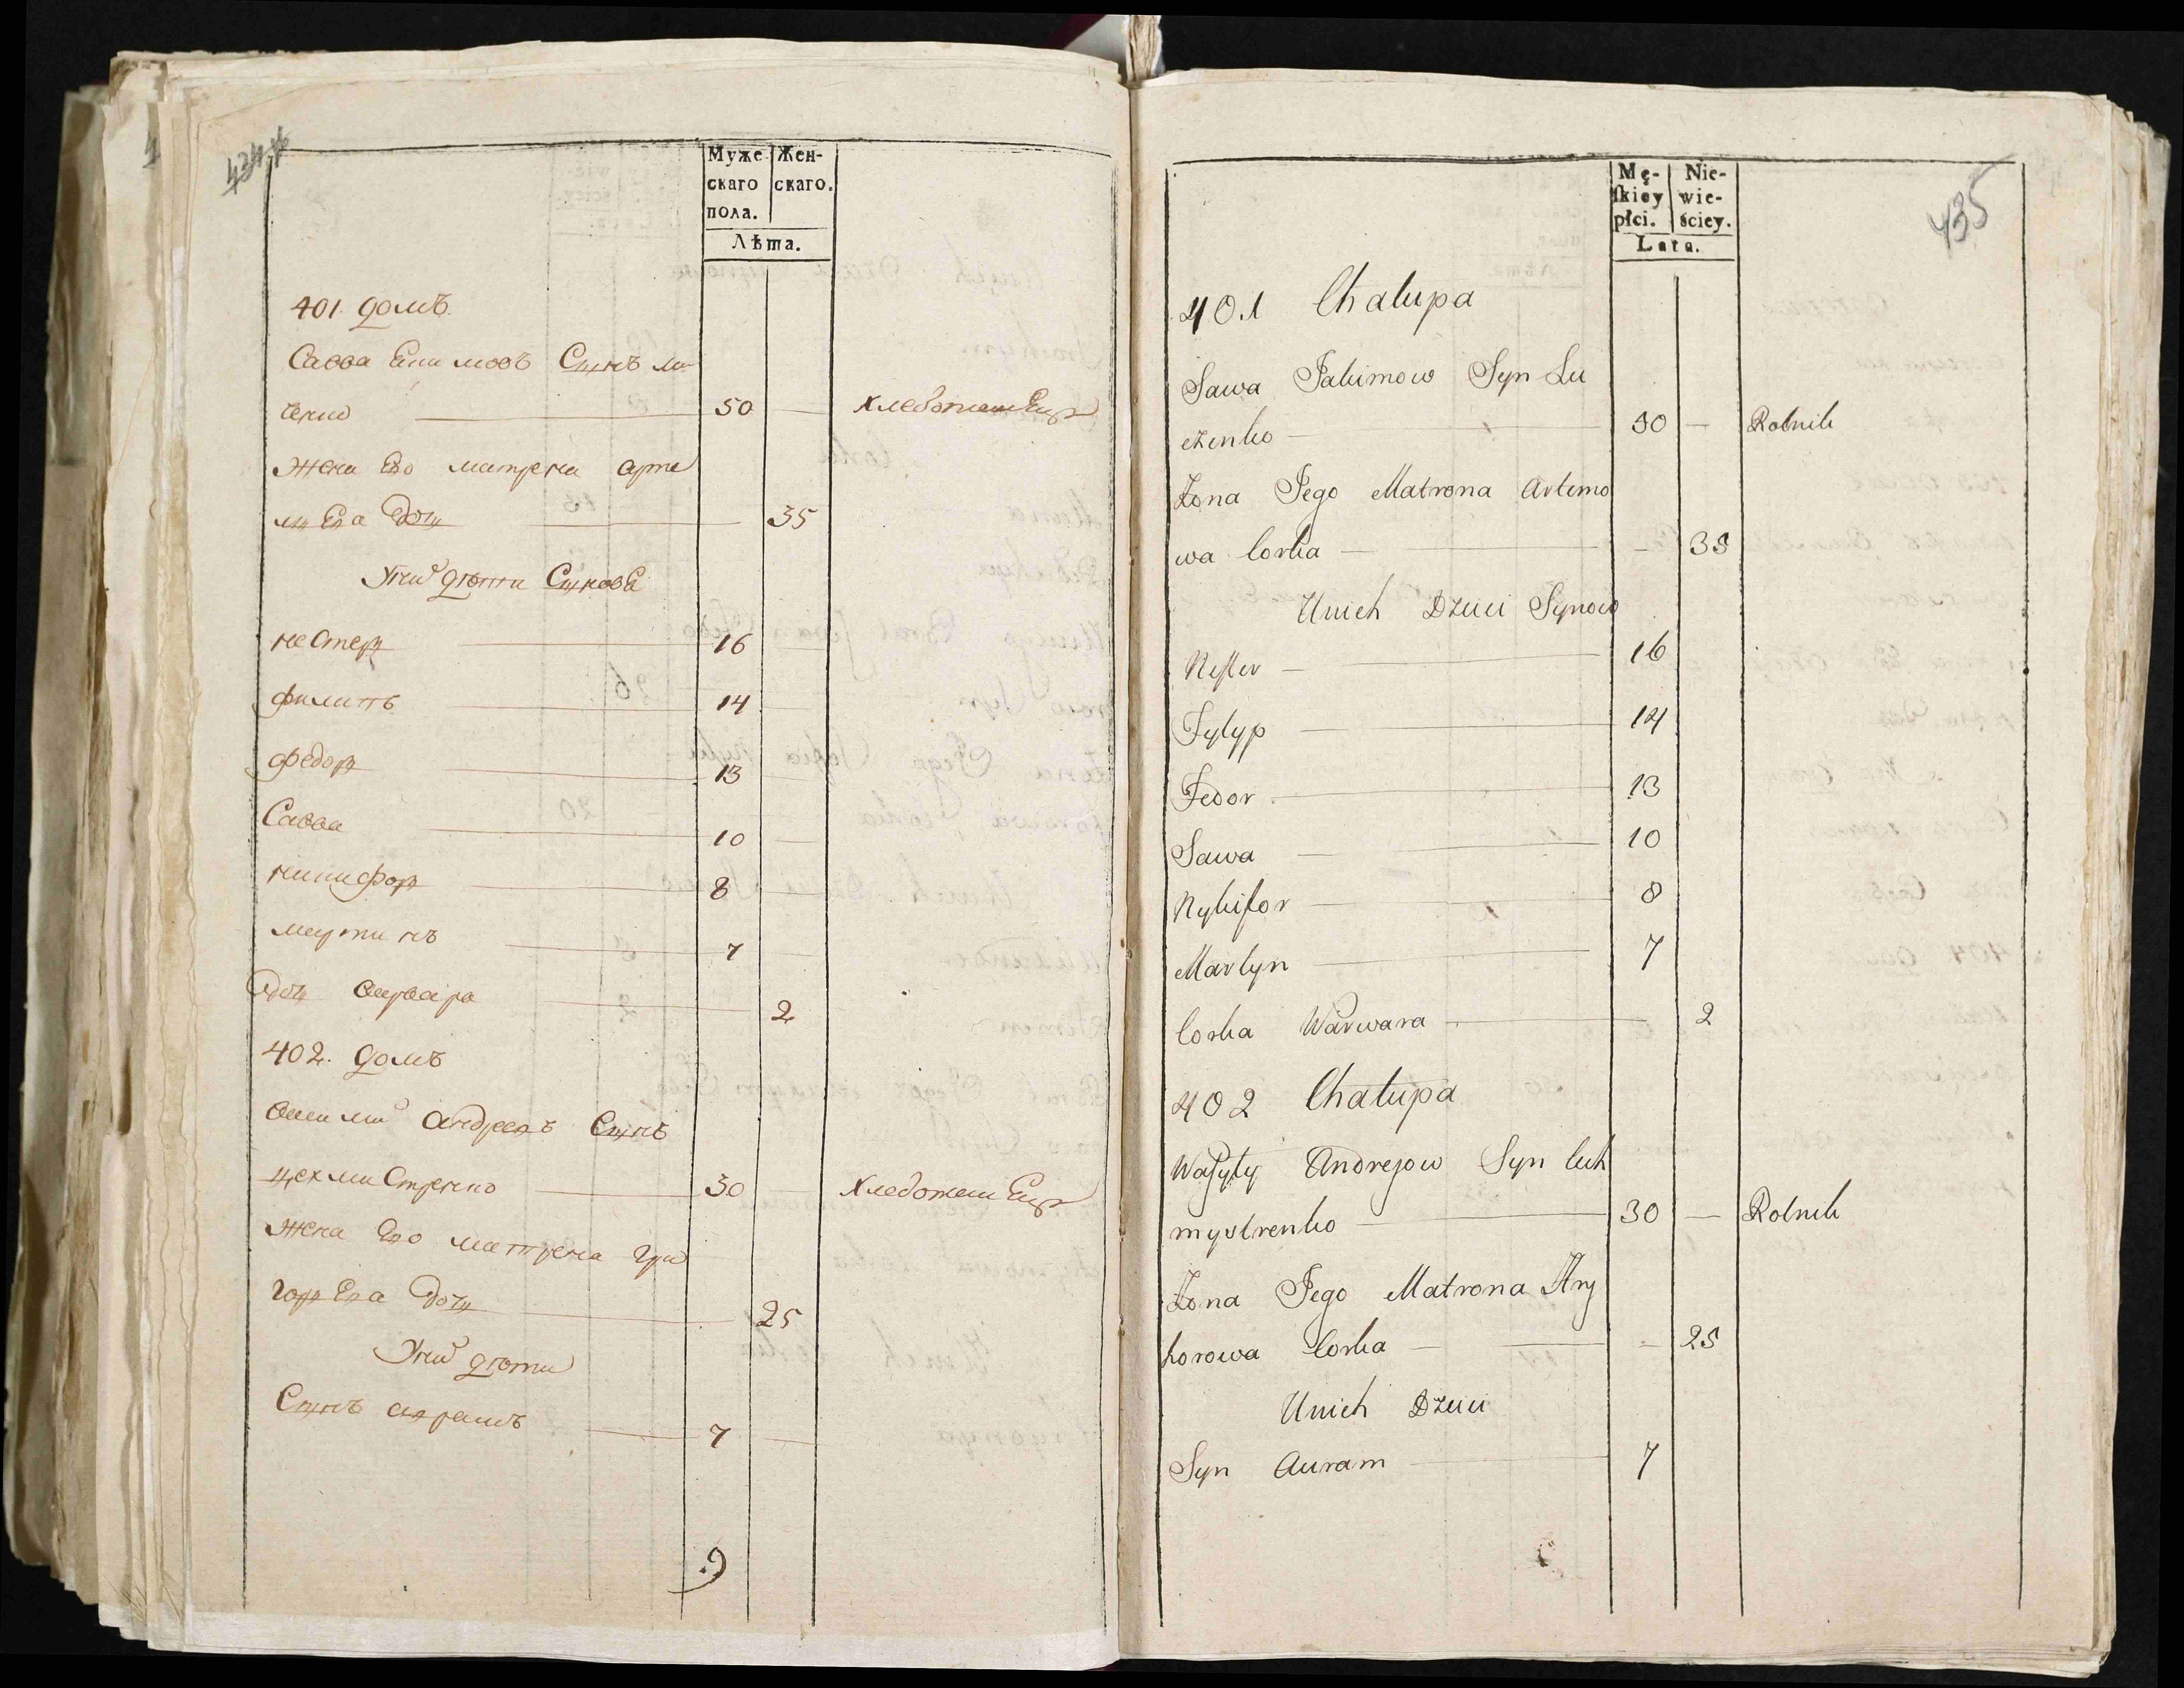 434
Муже-
скаго
пола.
Жен-
скаго.
Лѣта.
401. домъ.
Савва Екимовъ Сынъ лу
ченко 50 — хлебопашецъ
Жена Его матрена арте
мьева дочь — 35
У них дѣти Сынове
нестеръ 16
филипъ 14
федоръ 13
Савва 10
никифоръ 8
мартинъ 7
дочь варвара 2
402. домъ
василий андреевъ Сынъ
цехмистренко 30 — хлебопашецъ
Жена Его матрена гри
горьева дочь — 25
У них дѣти
Сынъ аврамъ 7 —
9
435
Mę-
skiey
płci.
Nie-
wie-
ściey.
Lata.
401 Chałupa
Sawa Jakimow Syn Lu
czenko 50 — Rolnik
Żona Jego Matrona Artemo
wa Corka — 35
Unich Dzieci Synow
Nester — 16
Fylyp — 14
Fedor 13
Sawa — 10
Nykifor — 8
Martyn — 7
Corka Warwara 2
402 Chałupa
Wasyly Andrejow Syn Ceh
mystrenko — 30 — Rolnik
Żona Jego Matrona Hry
horowa Corka — 25
Unich Dzieci
Syn Auram 7